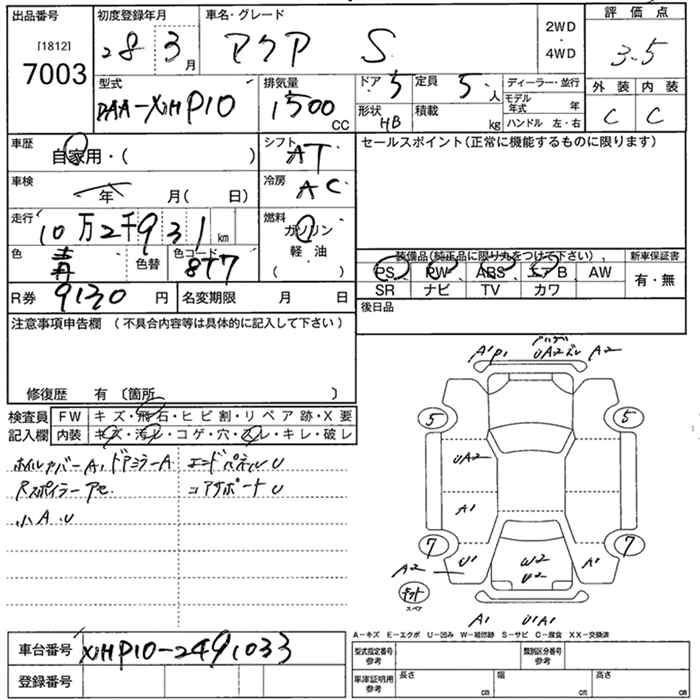 出品番号
[1812]
7003
初度登録年月
28 3月
車名・グレード
アクア S
2WD
・
4WD
評価点
3.5
外装 内装
C C
型式
DAA-NHP10
排気量
1500
CC
ドア 5
定員 5人
形状 HB
積載 kg
ディーラー・並行
モデル年式 年
ハンドル 左・右
車歴
自家用・( )
シフト
AT
セールスポイント(正常に機能するものに限ります)
車検
年 月( 日)
冷房
AC
走行
10万2千931 km
燃料
ガソリン
軽油
( )
色
青
色替
色コード
8T7
装備品(純正品に限り丸をつけて下さい)
PS PW ABS エアB AW
SR ナビ TV カワ
新車保証書
有・無
R券 9130円
名変期限 月 日
後日品
注意事項申告欄 (不具合内容等は具体的に記入して下さい)
修復歴 有 〔箇所 〕
検査員記入欄
FW キズ・飛石・ヒビ割・リペア跡・X要
内装 キズ・汚レ・コゲ・穴・スレ・キレ・破レ
ホイルカバーA1 ドアミラーA エンドパネルU
Rスポイラーアセ コアサポートU
小A.U
A1P1 UA2ズレ A2
5 5
UA2
A1
7 7
A2 U1 W2 A1
U2
キット
スペア
A1 U1A1
A-キズ E-エクボ U-凹み W-補修跡 S-サビ C-腐食 XX-交換済
車台番号 NHP10-2491033
登録番号
型式指定番号
参考
類別区分番号
参考
車庫証明用
参考
長さ cm
幅 cm
高さ cm